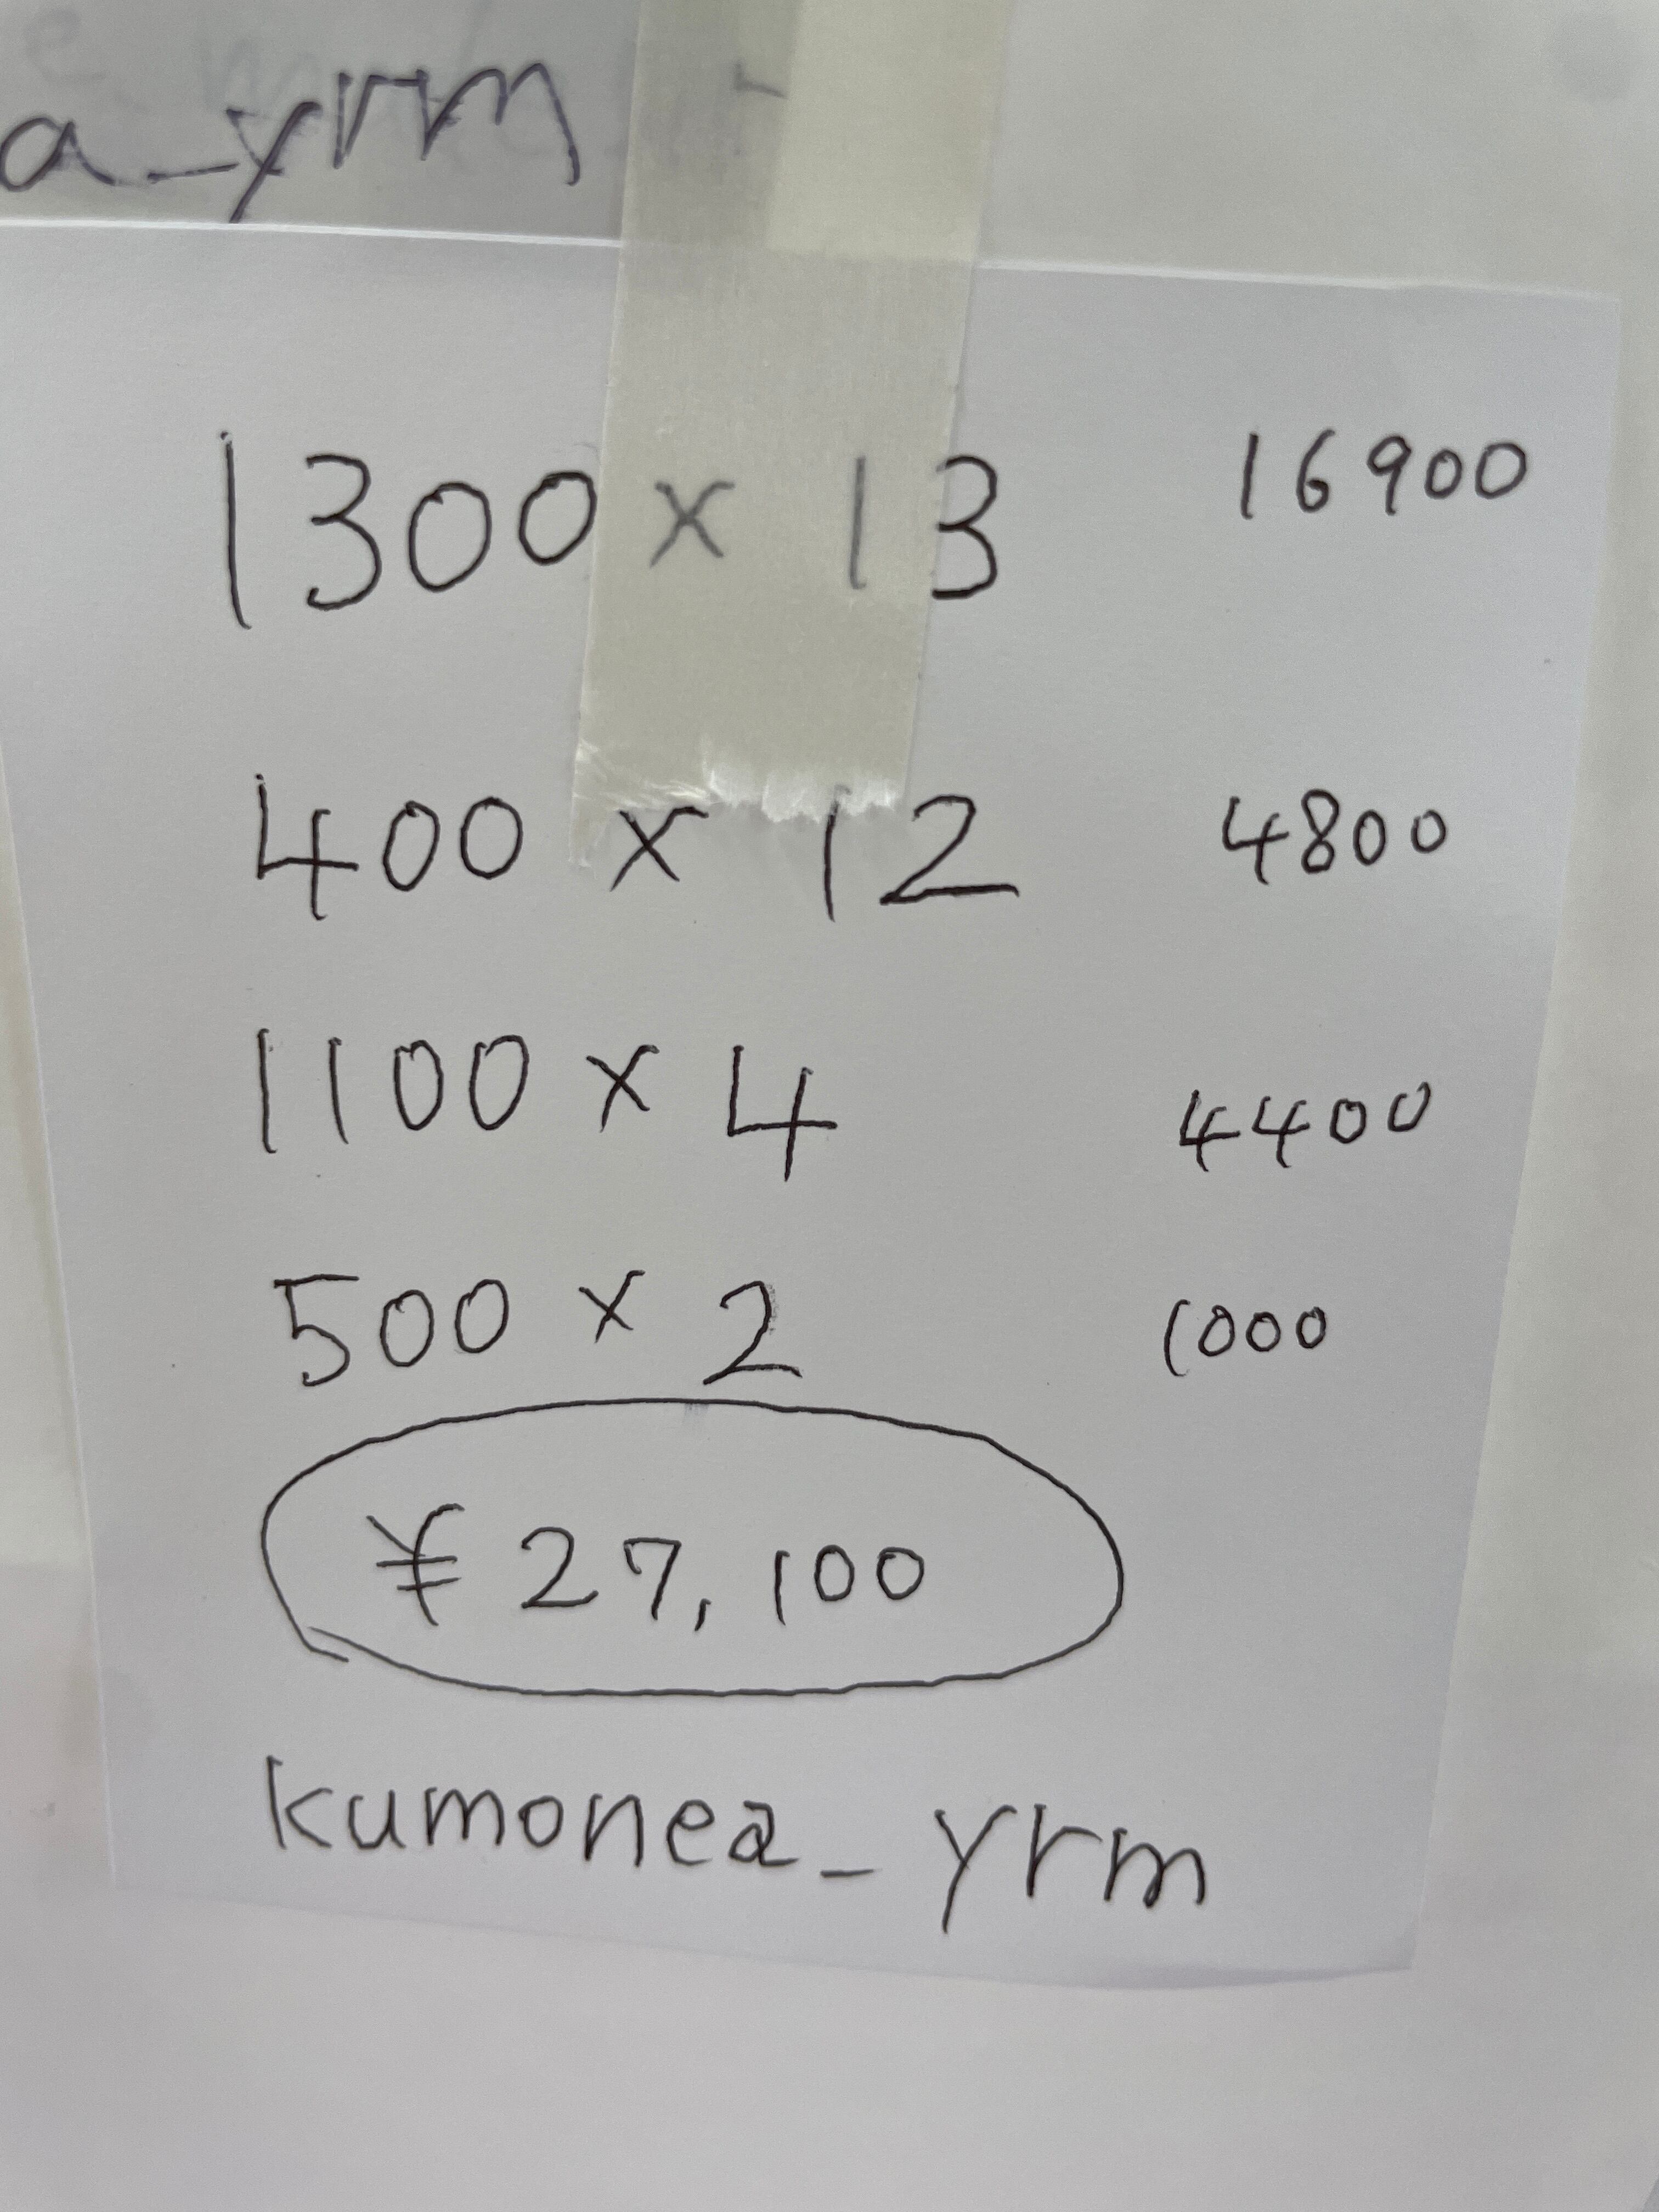 a_yrm
1300 x 13 16900
400 x 12 4800
1100 x 4 4400
500 x 2 1000
¥27,100
kumonea_yrm